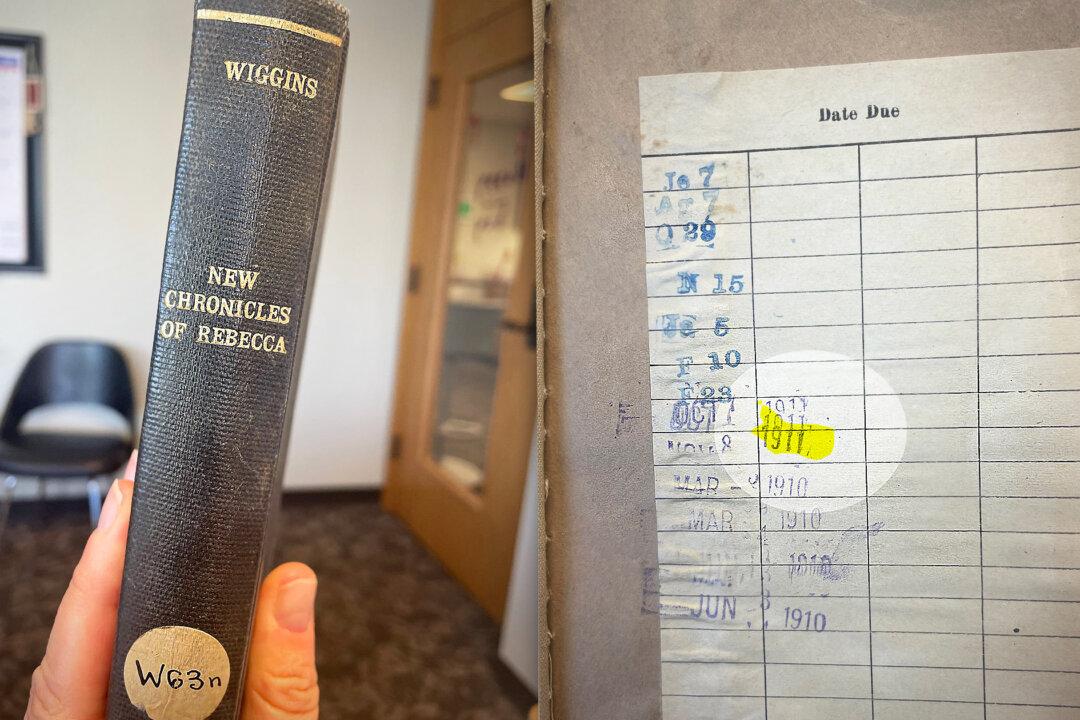 WIGGINS
NEW
CHRONICLES
OF REBECCA
W63n
Date Due
Ja 7
Ap 7
O 29
N 15
Ja 5
F 10
F 23
OCT 1911
NOV 8 1911
MAR - 9 1910
MAR 1910
1910
JUN 1910